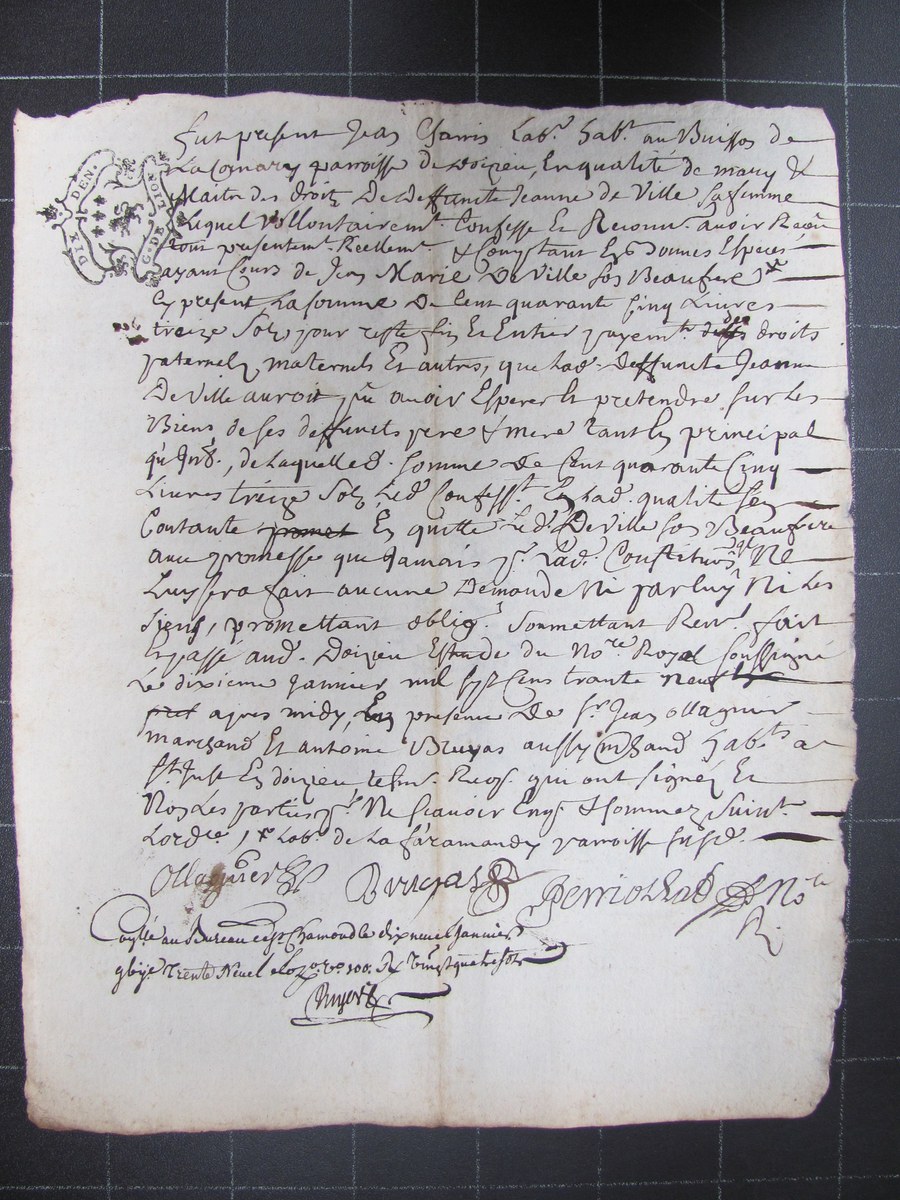 DIX DEN.
G. DE LION
Fut present Jean Charrin Lab.r hab.t au Buisson de
paroisse de doizieu, En qualité de mary &
Maitre des droitz De deffuncte Jeanne de Ville sa femme
Lequel Vollontairem.t Confesse Et Reconn.t avoir Reçeu
tout presentem.t Reellem.t & Comptant En Bonnes Especes
ayant Cours de Jean Marie De Ville son Beaufrere x
Cy present La somme De Cent quarante Cinq Livres
treize Solz pour reste fin Et Entier payem.t des droits
paternelz maternels Et autres, que lad. deffuncte Jeanne
De Ville auroit pu avoir Esperer Et pretendre sur Les
Biens de ses deffuncts pere & mere tant En principal
qu'Int., de Laquelle d. somme de Cent quarante Cinq
Livres treize Solz Led. Confess.t En lad. qualité s'en
Contante promet En quitte Led. De Ville son Beaufrere
avec promesse que Jamais Ne
Luy sera fait aucune Demande Ni par luy Ni Les
siens, promettant oblig.t Soumettant Ren.t fait
Et passé aud. Doizieu Estude du No.re Royal soussigné
Le dixieme Janvier mil sept Cens trante neuf
apres midy, En presence de s.r Jean ollagnier
marchand Et antoine Bruyas aussy mchand hab.ts a
st Just En doizieu tesm. Req. qui ont signéz Et
Non Les parties p.r Ne sçavoir Enq. & sommez Suiv.t
Lord.ce / x Lab.r de La faramandy parroisse susd.
Ollagnier Bruyas No.re
R.
au Bureau de st Chamond le dix neuf Janvier
Trente Neuf vingt quatre sols